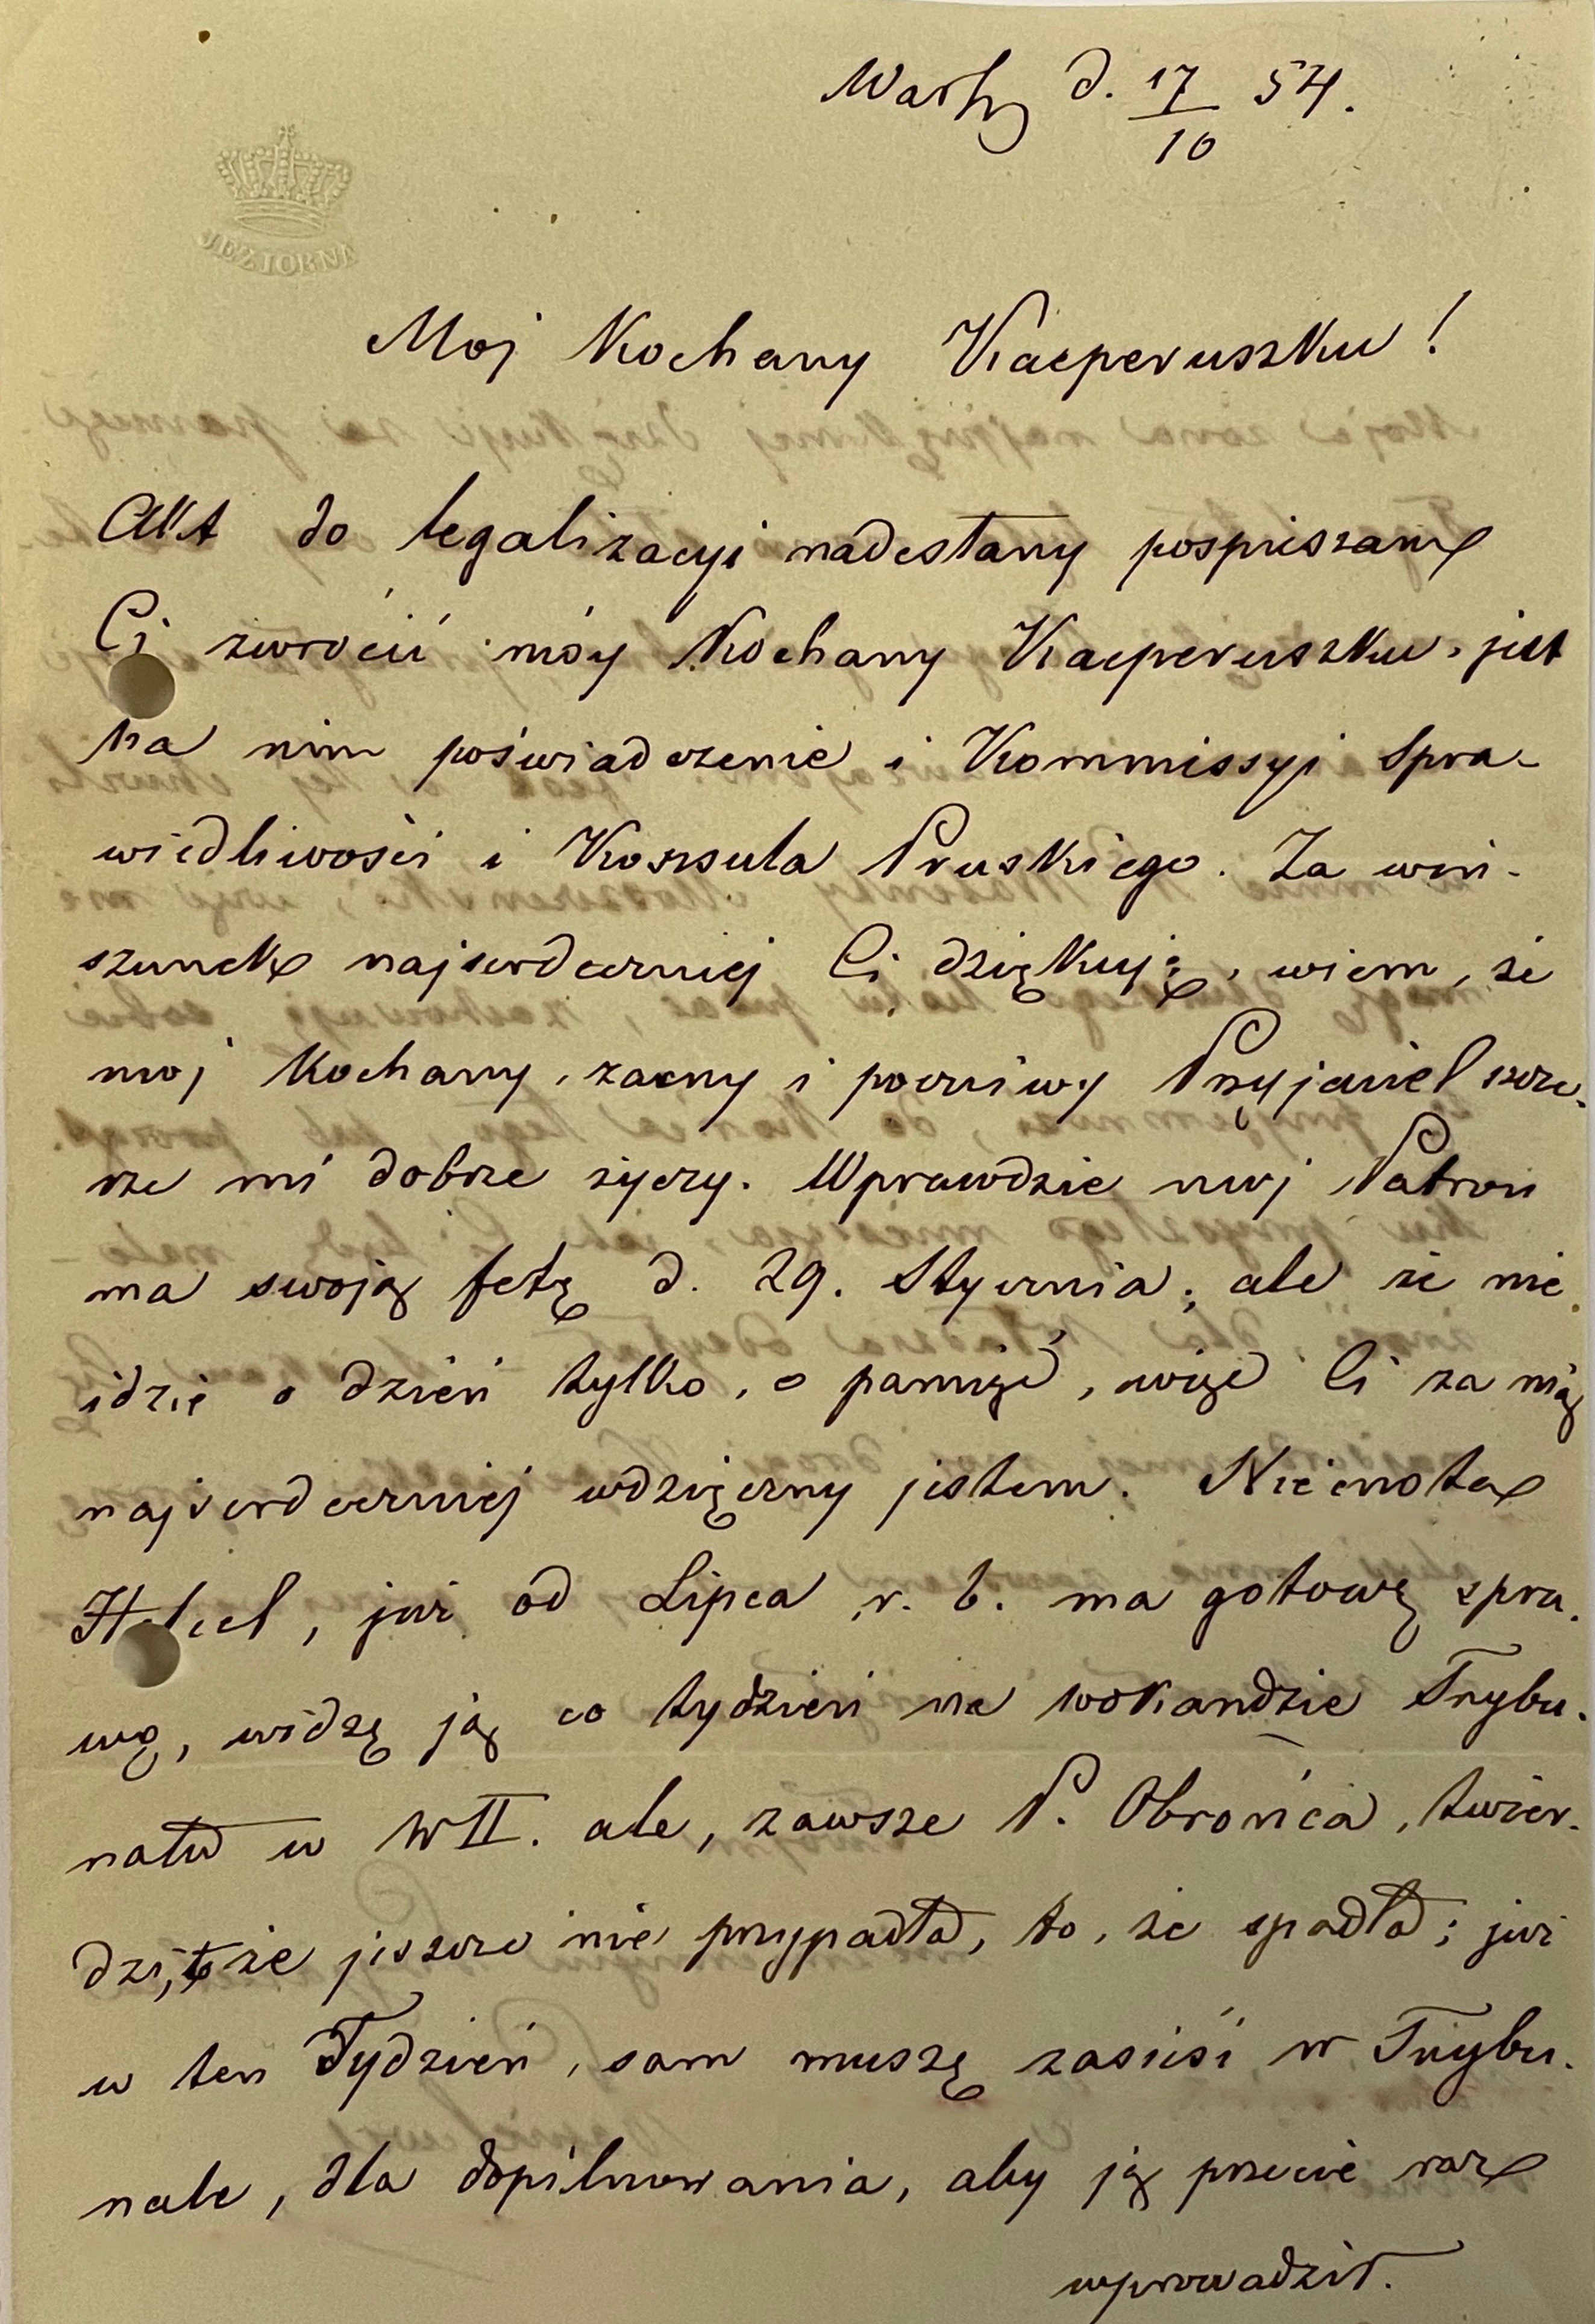 Warsz d. 17/10 54.
JEZIORNA
Moj Kochany Kacperuszku!
Akt do legalizacyi nadesłany pospieszam
Ci zwrócić móy Kochany Kacperuszku, jest
na nim poświadczenie i Kommissyi Spra-
wiedliwości i Konsula Pruskiego. Za win-
szunek najserdeczniej Ci dziękuję, wiem, że
moj Kochany, zacny i poczciwy Przyjaciel szcze-
rze mi dobrze życzy. Wprawdzie mój Patron
ma swoją fetę d. 29. Stycznia; ale że nie
idzie o dzień tylko, o pamięć, więc Ci za nią
najserdeczniej wdzięczny jestem. Niecnota
, już od Lipca r. b. ma gotową spra-
wę, widzę ją co tydzień na wokandzie Trybu-
nału w W II. ale, zawsze P. Obrońca, twier-
dzi, że jeszcze nie przypadła, to, że spadła; już
w ten Tydzień, sam muszę zasieść w Trybu-
nale, dla dopilnowania, aby ją przecie raz
wprowadził.